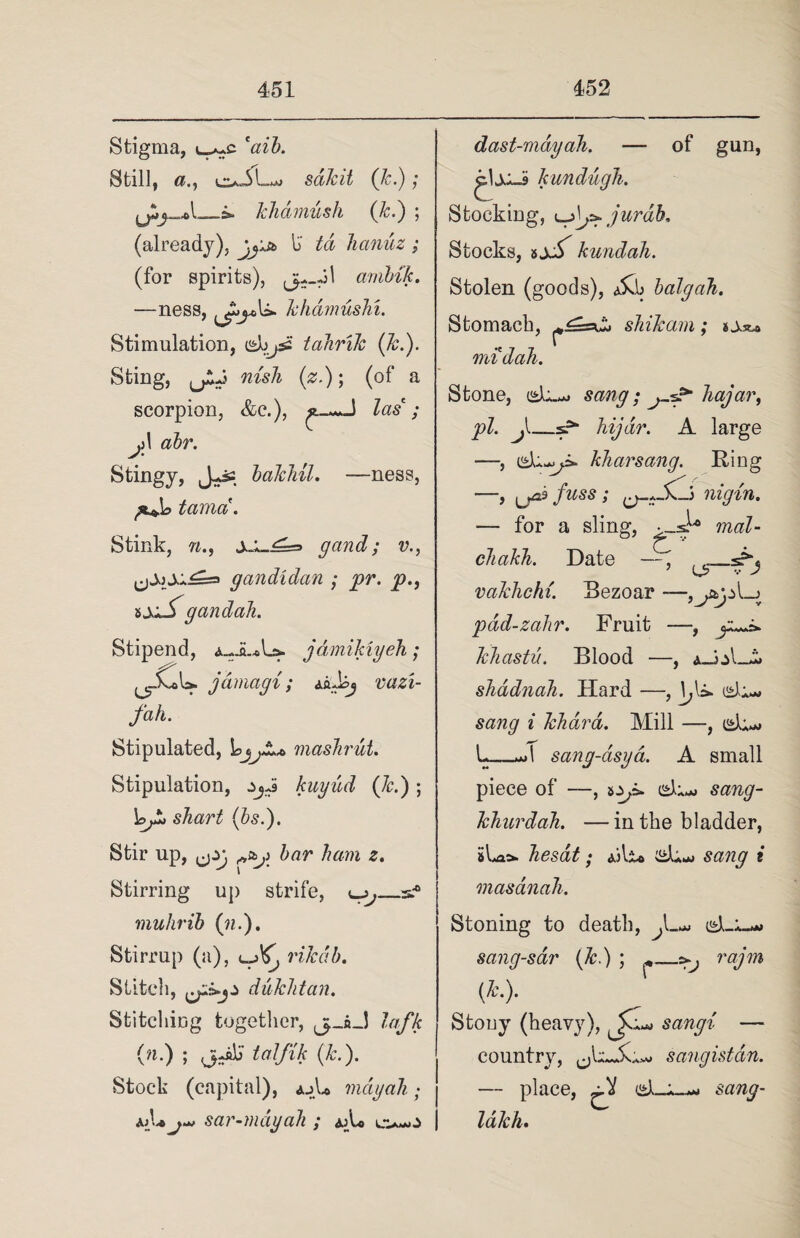 451
452
Stigma, عيب ʿaib.
Still, a., ساکت sákit (k.);
خاموش khámúsh (k.);
(already), تا هنوز tá hanúz;
(for spirits), انبيق ambík.
—ness, خاموشی khámúshí.
Stimulation, تحريک tahrík (k.).
Sting, نيش nísh (z.); (of a
scorpion, &c.), لسع lasʿ;
ابر abr.
Stingy, بخيل bakhíl. —ness,
طمع tamaʿ.
Stink, n., گند gand; v.,
گنديدن gandídan; pr. p.,
گنده gandah.
Stipend, جامقيه jámikíyeh;
جامگی jámagí; وظيفه vazí-
fah.
Stipulated, مشروط mashrút.
Stipulation, قيود kuyúd (k.);
شرط shart (bs.).
Stir up, برهم زدن bar ham z.
Stirring up strife, محرب
muhrib (n.).
Stirrup (a), رکاب rikáb.
Stitch, دوختن dúkhtan.
Stitching together, لفق lafk
(n.); تلفيق talfík (k.).
Stock (capital), مايه máyah;
سرمايه sar-máyah; دست مايه
dast-máyah. — of gun,
قنداغ kundúgh.
Stocking, جراب juráb.
Stocks, کنده kundah.
Stolen (goods), بلگه balgah.
Stomach, شکم shikam; معده
miʿdah.
Stone, سنگ sang; حجر hajar,
pl. حجار hijár. A large
—, خرسنگ kharsang. Ring
—, فص fuss; نگين nigín.
— for a sling, ملخج mal-
chakh. Date —, وخچی
vakhchí. Bezoar —, پادزهر
pád-zahr. Fruit —, خستو
khastú. Blood —, شادنه
shádnah. Hard —, سنگ خارا
sang i khárá. Mill —, سنگ
آسيا sang-ásyá. A small
piece of —, سنگ خرده sang-
khurdah. — in the bladder,
حصاة hesát; سنگ مثانه sang i
masánah.
Stoning to death, سنگ سار
sang-sár (k.); رجم rajm
(k.).
Stony (heavy), سنگی sangí —
country, سنگستان sangistán.
— place, سنگ لاخ sang-
lákh.